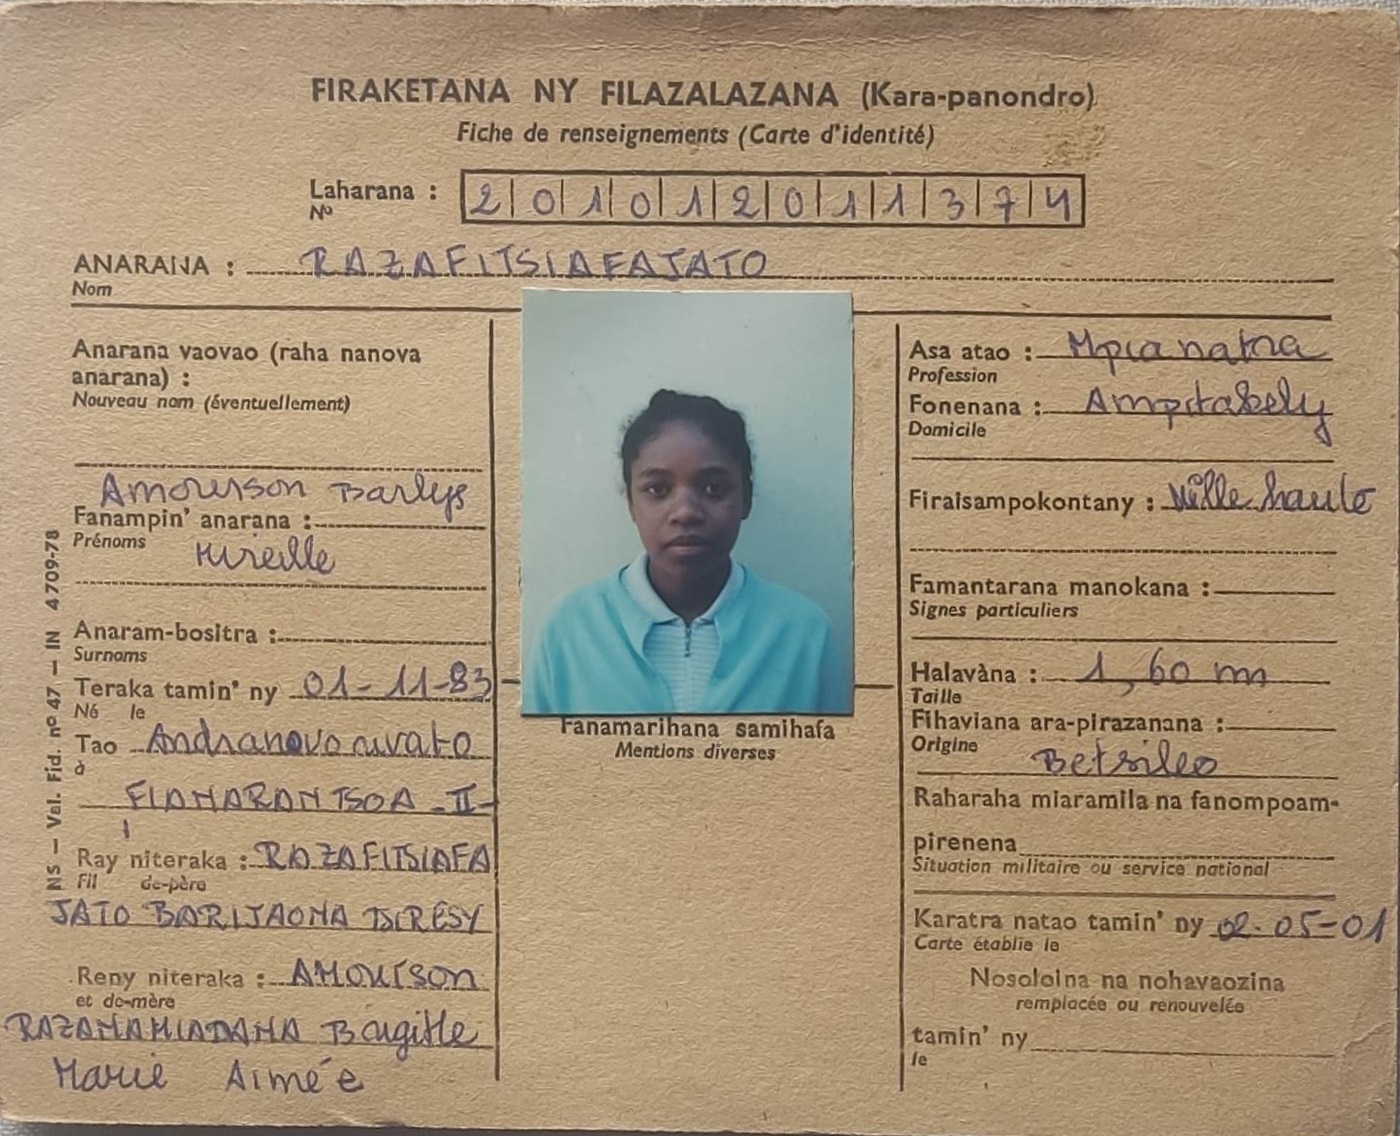 FIRAKETANA NY FILAZALAZANA (Kara-panondro)
Fiche de renseignements (Carte d'identité)
Laharana : 201012011374
No
ANARANA : RAZAFITSIAFAJATO
Nom
Anarana vaovao (raha nanova
anarana) :
Nouveau nom (éventuellement)
Amourson Barlys
Fanampin' anarana :
Prénoms Mireille
Anaram-bositra :
Surnoms
Teraka tamin' ny 01-11-83
Né le
Tao Andranovorivato
à
FIANARANTSOA-II-
Ray niteraka : RAZAFITSIAFA
Fil de-père
JATO BARIJAONA TSIRESY
Reny niteraka : AMOURSON
et de-mère
RAZANAMIADANA Brigitte
Marie Aimée
NS — Val. Fid. nº 47 — IN 4709-78
Fanamarihana samihafa
Mentions diverses
Asa atao : Mpianatra
Profession
Fonenana : Ampitabely
Domicile
Firaisampokontany : Ville haute
Famantarana manokana :
Signes particuliers
Halavàna : 1,60 m
Taille
Fihaviana ara-pirazanana :
Origine Betsileo
Raharaha miaramila na fanompoam-
pirenena
Situation militaire ou service national
Karatra natao tamin' ny 02-05-01
Carte établie le
Nosoloina na nohavaozina
remplacée ou renouvelée
tamin' ny
le